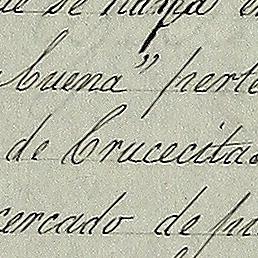 se halla
buena" perte
de Crucecitas
cercado de pi